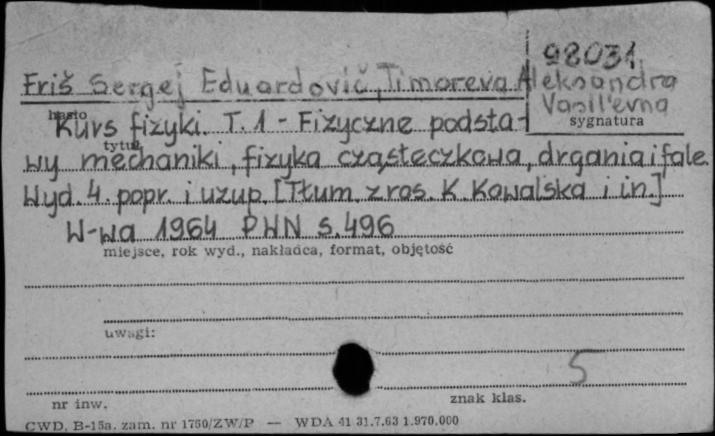 98031
Friš Sergej Eduardovič, Timoreva Aleksandra
Vasil'evna
hasło
sygnatura
Kurs fizyki. T. 1 - Fizyczne podsta-
tytuł
wy mechaniki, fizyka cząsteczkowa, drgania i fale.
Wyd. 4. popr. i uzup. [Tłum. z ros. K. Kowalska i in.]
W-wa 1964 PWN s. 496
miejsce, rok wyd., nakładca, format, objętość
uwagi:
5
nr inw.
znak klas.
CWD, B-15a. zam. nr 1750/ZW/P — WDA 41 31.7.63 1.970.000